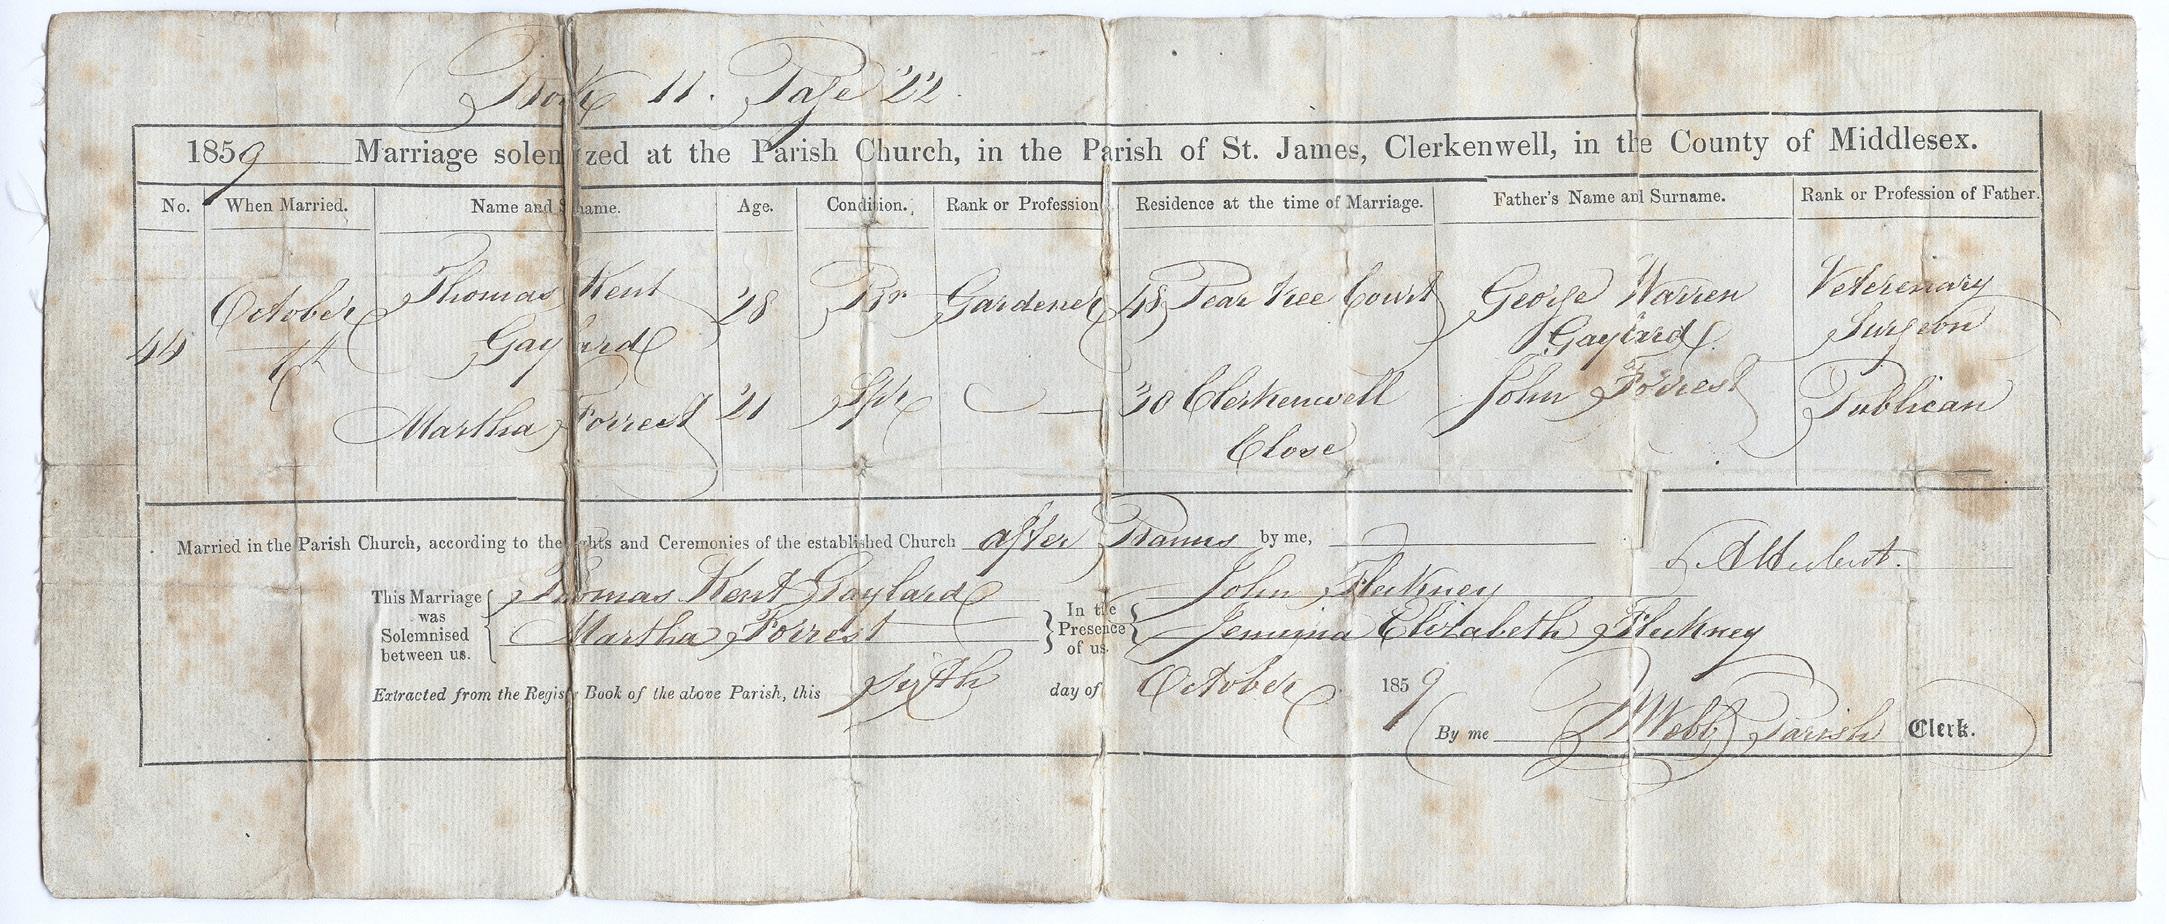 Book 11. Page 22.
1859 Marriage solemnized at the Parish Church, in the Parish of St. James, Clerkenwell, in the County of Middlesex.
No. When Married. Name and Surname. Age. Condition. Rank or Profession Residence at the time of Marriage. Father's Name and Surname. Rank or Profession of Father.
October Thomas Kent 28 Br Gardener 48 Pear Tree Court George Warren Veterenary
44 Gaylard Gaylard Surgeon
Martha Forrest 21 Spr 30 Clerkenwell John Forrest Publican
Close
Married in the Parish Church, according to the Rights and Ceremonies of the established Church after Banns by me,
This Marriage was Solemnised between us. Thomas Kent Gaylard In the Presence of us. John Fleckney
Martha Forrest Jemima Elizabeth Fleckney
Extracted from the Register Book of the above Parish, this sixth day of October 1859
By me Webb Parish Clerk.